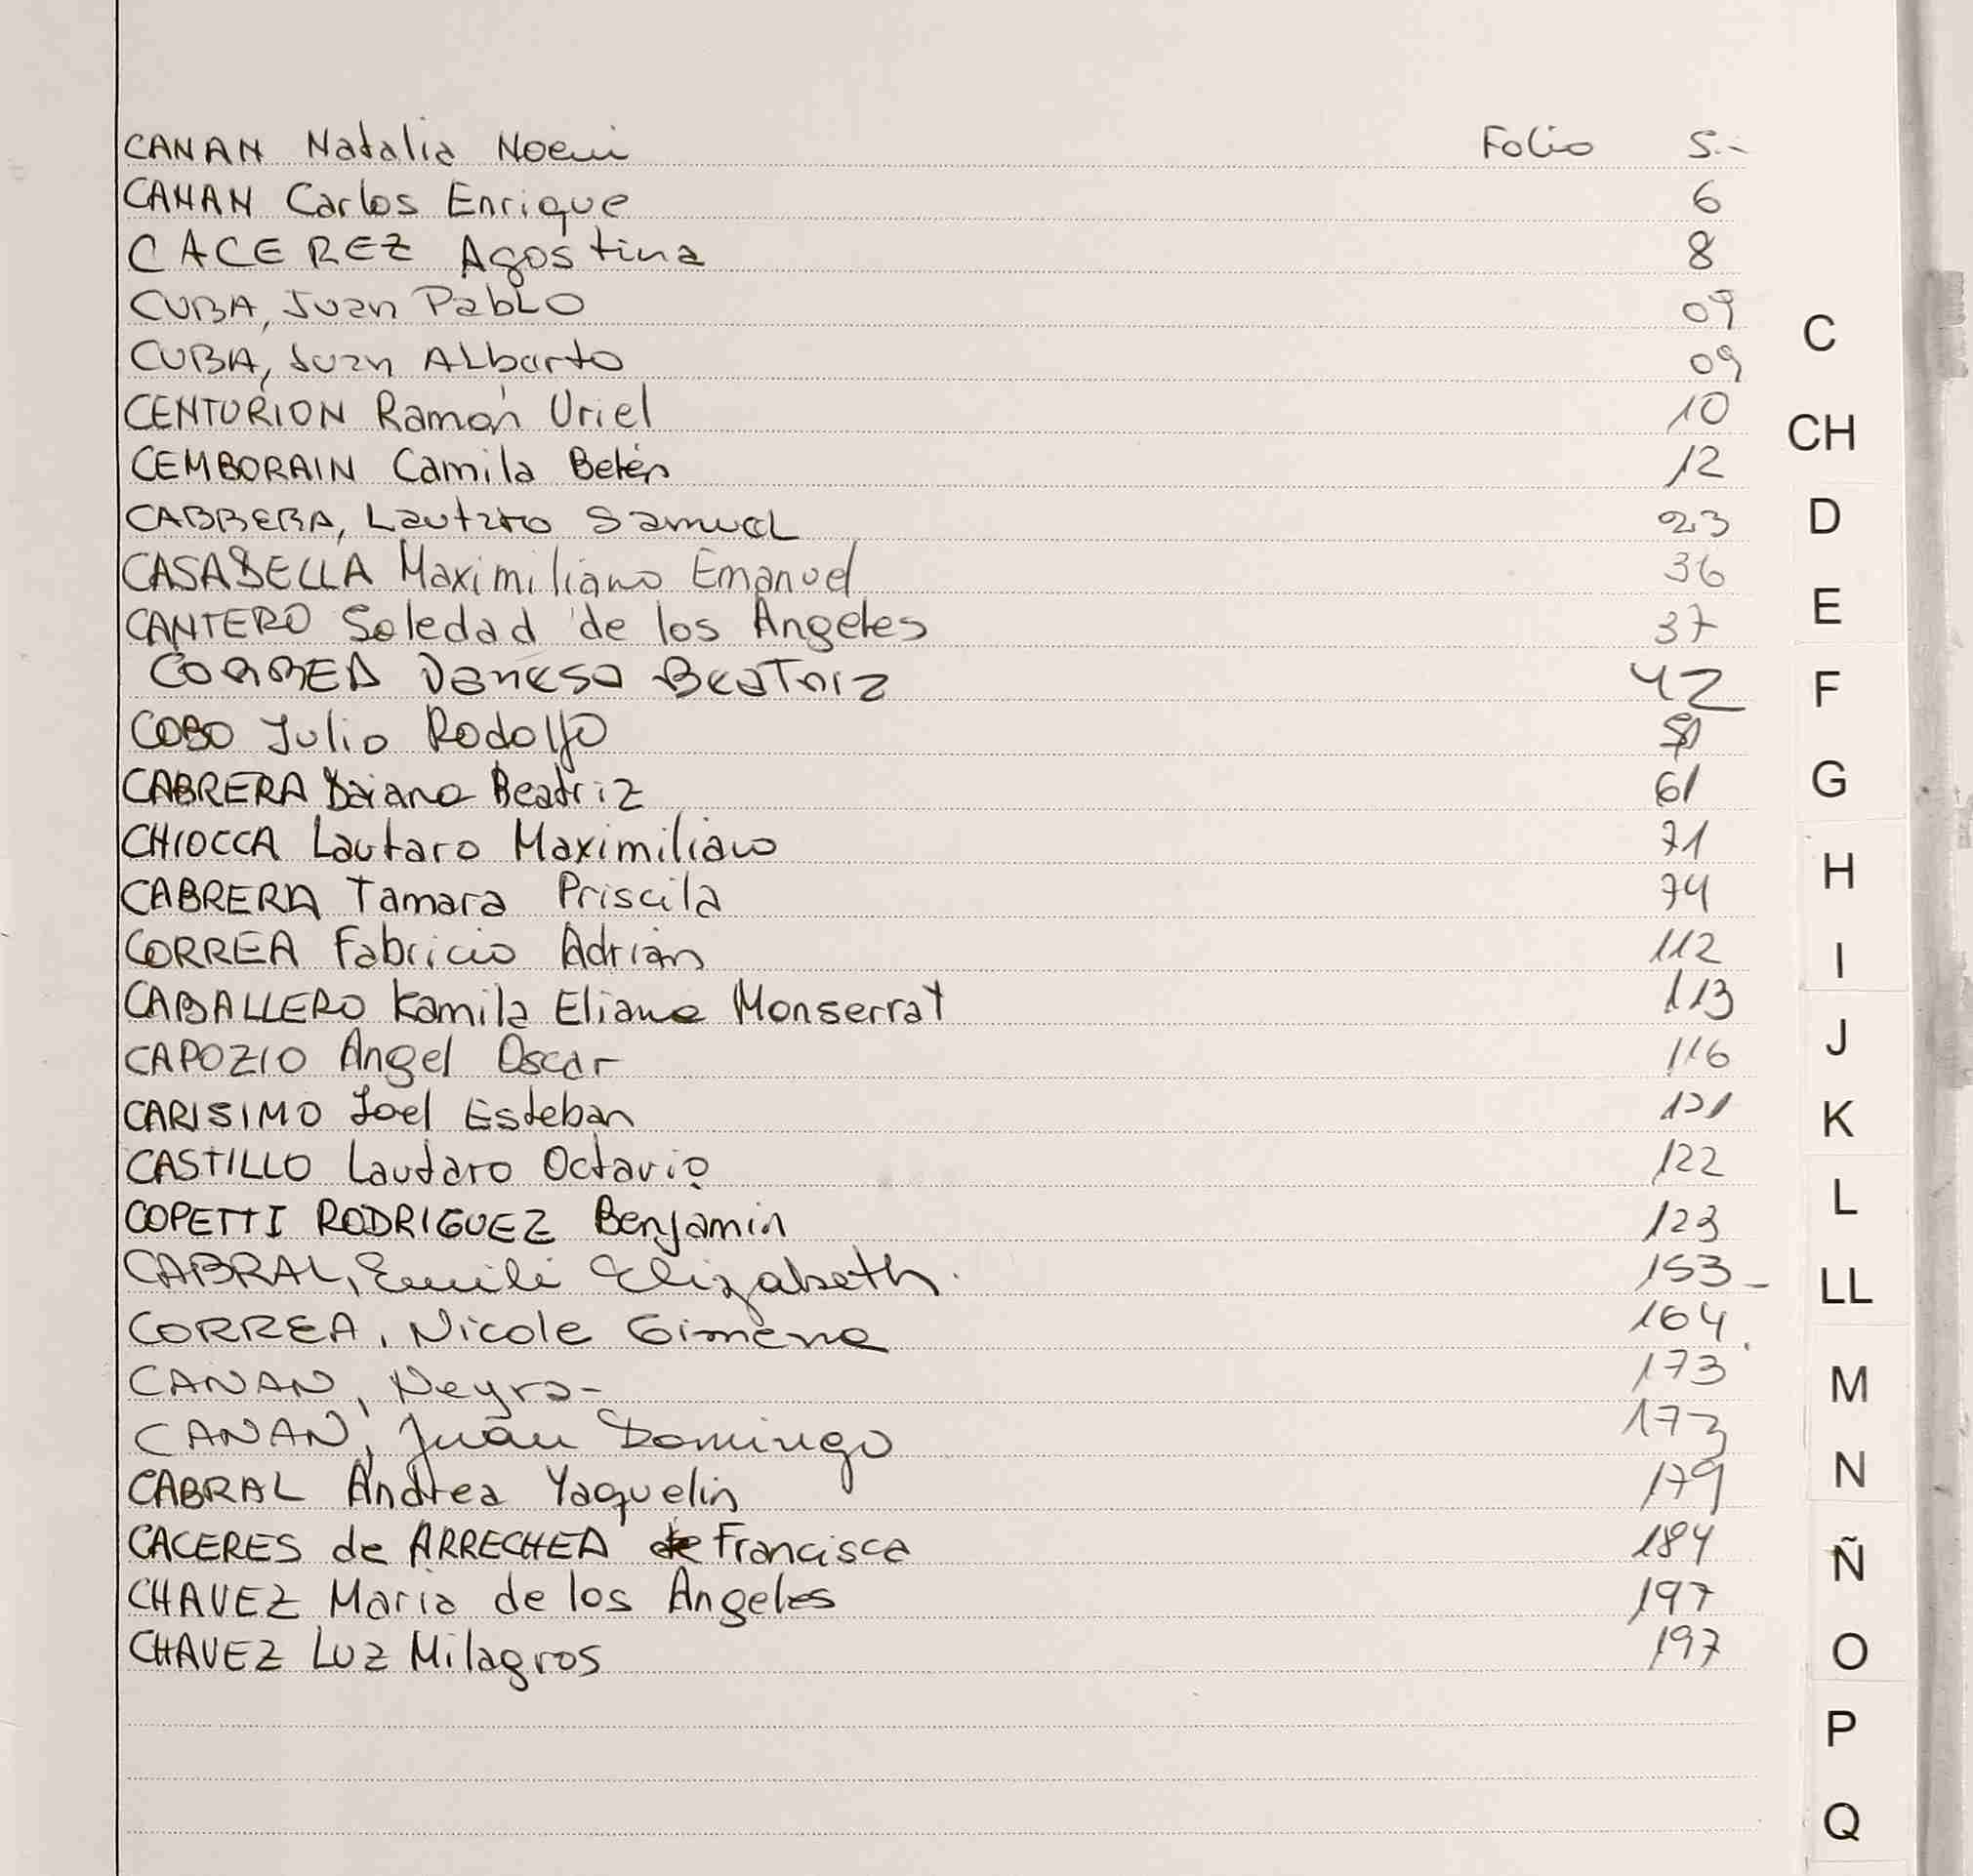 CANAN Natalia Noemi Folio 5.-
CANAN Carlos Enrique 6
CACEREZ Agostina 8
CUBA, Juan Pablo 09
CUBA, Juan Alberto 09
C
CENTURION Ramón Uriel 10
CH
CEMBORAIN Camila Belén 12
CABRERA, Lautaro Samuel 23
D
CASABELLA Maximiliano Emanuel 36
CANTERO Soledad de los Ángeles 37
E
CORREA Vanesa Beatriz 42
F
COBO Julio Rodolfo
CABRERA Daiana Beatriz 61
G
CHIOCCA Lautaro Maximiliano 71
H
CABRERA Tamara Priscila 74
CORREA Fabricio Adrián 112
I
CABALLERO Kamila Eliana Monserrat 113
CAPOZIO Ángel Oscar 116
J
CARISIMO Joel Esteban 121
K
CASTILLO Lautaro Octavio 122
L
COPETTI RODRIGUEZ Benjamin 123
CABRAL, Emili Elizabeth. 153-
LL
CORREA, Nicole Gimena 164.
CANAN, Neyra- 173
M
CANAN, Juan Domingo 173
N
CABRAL Andrea Yaquelin 179
CACERES de ARRECHEA Francisca 184
Ñ
CHAVEZ Maria de los Angeles 197
CHAVEZ Luz Milagros 197
O
P
Q